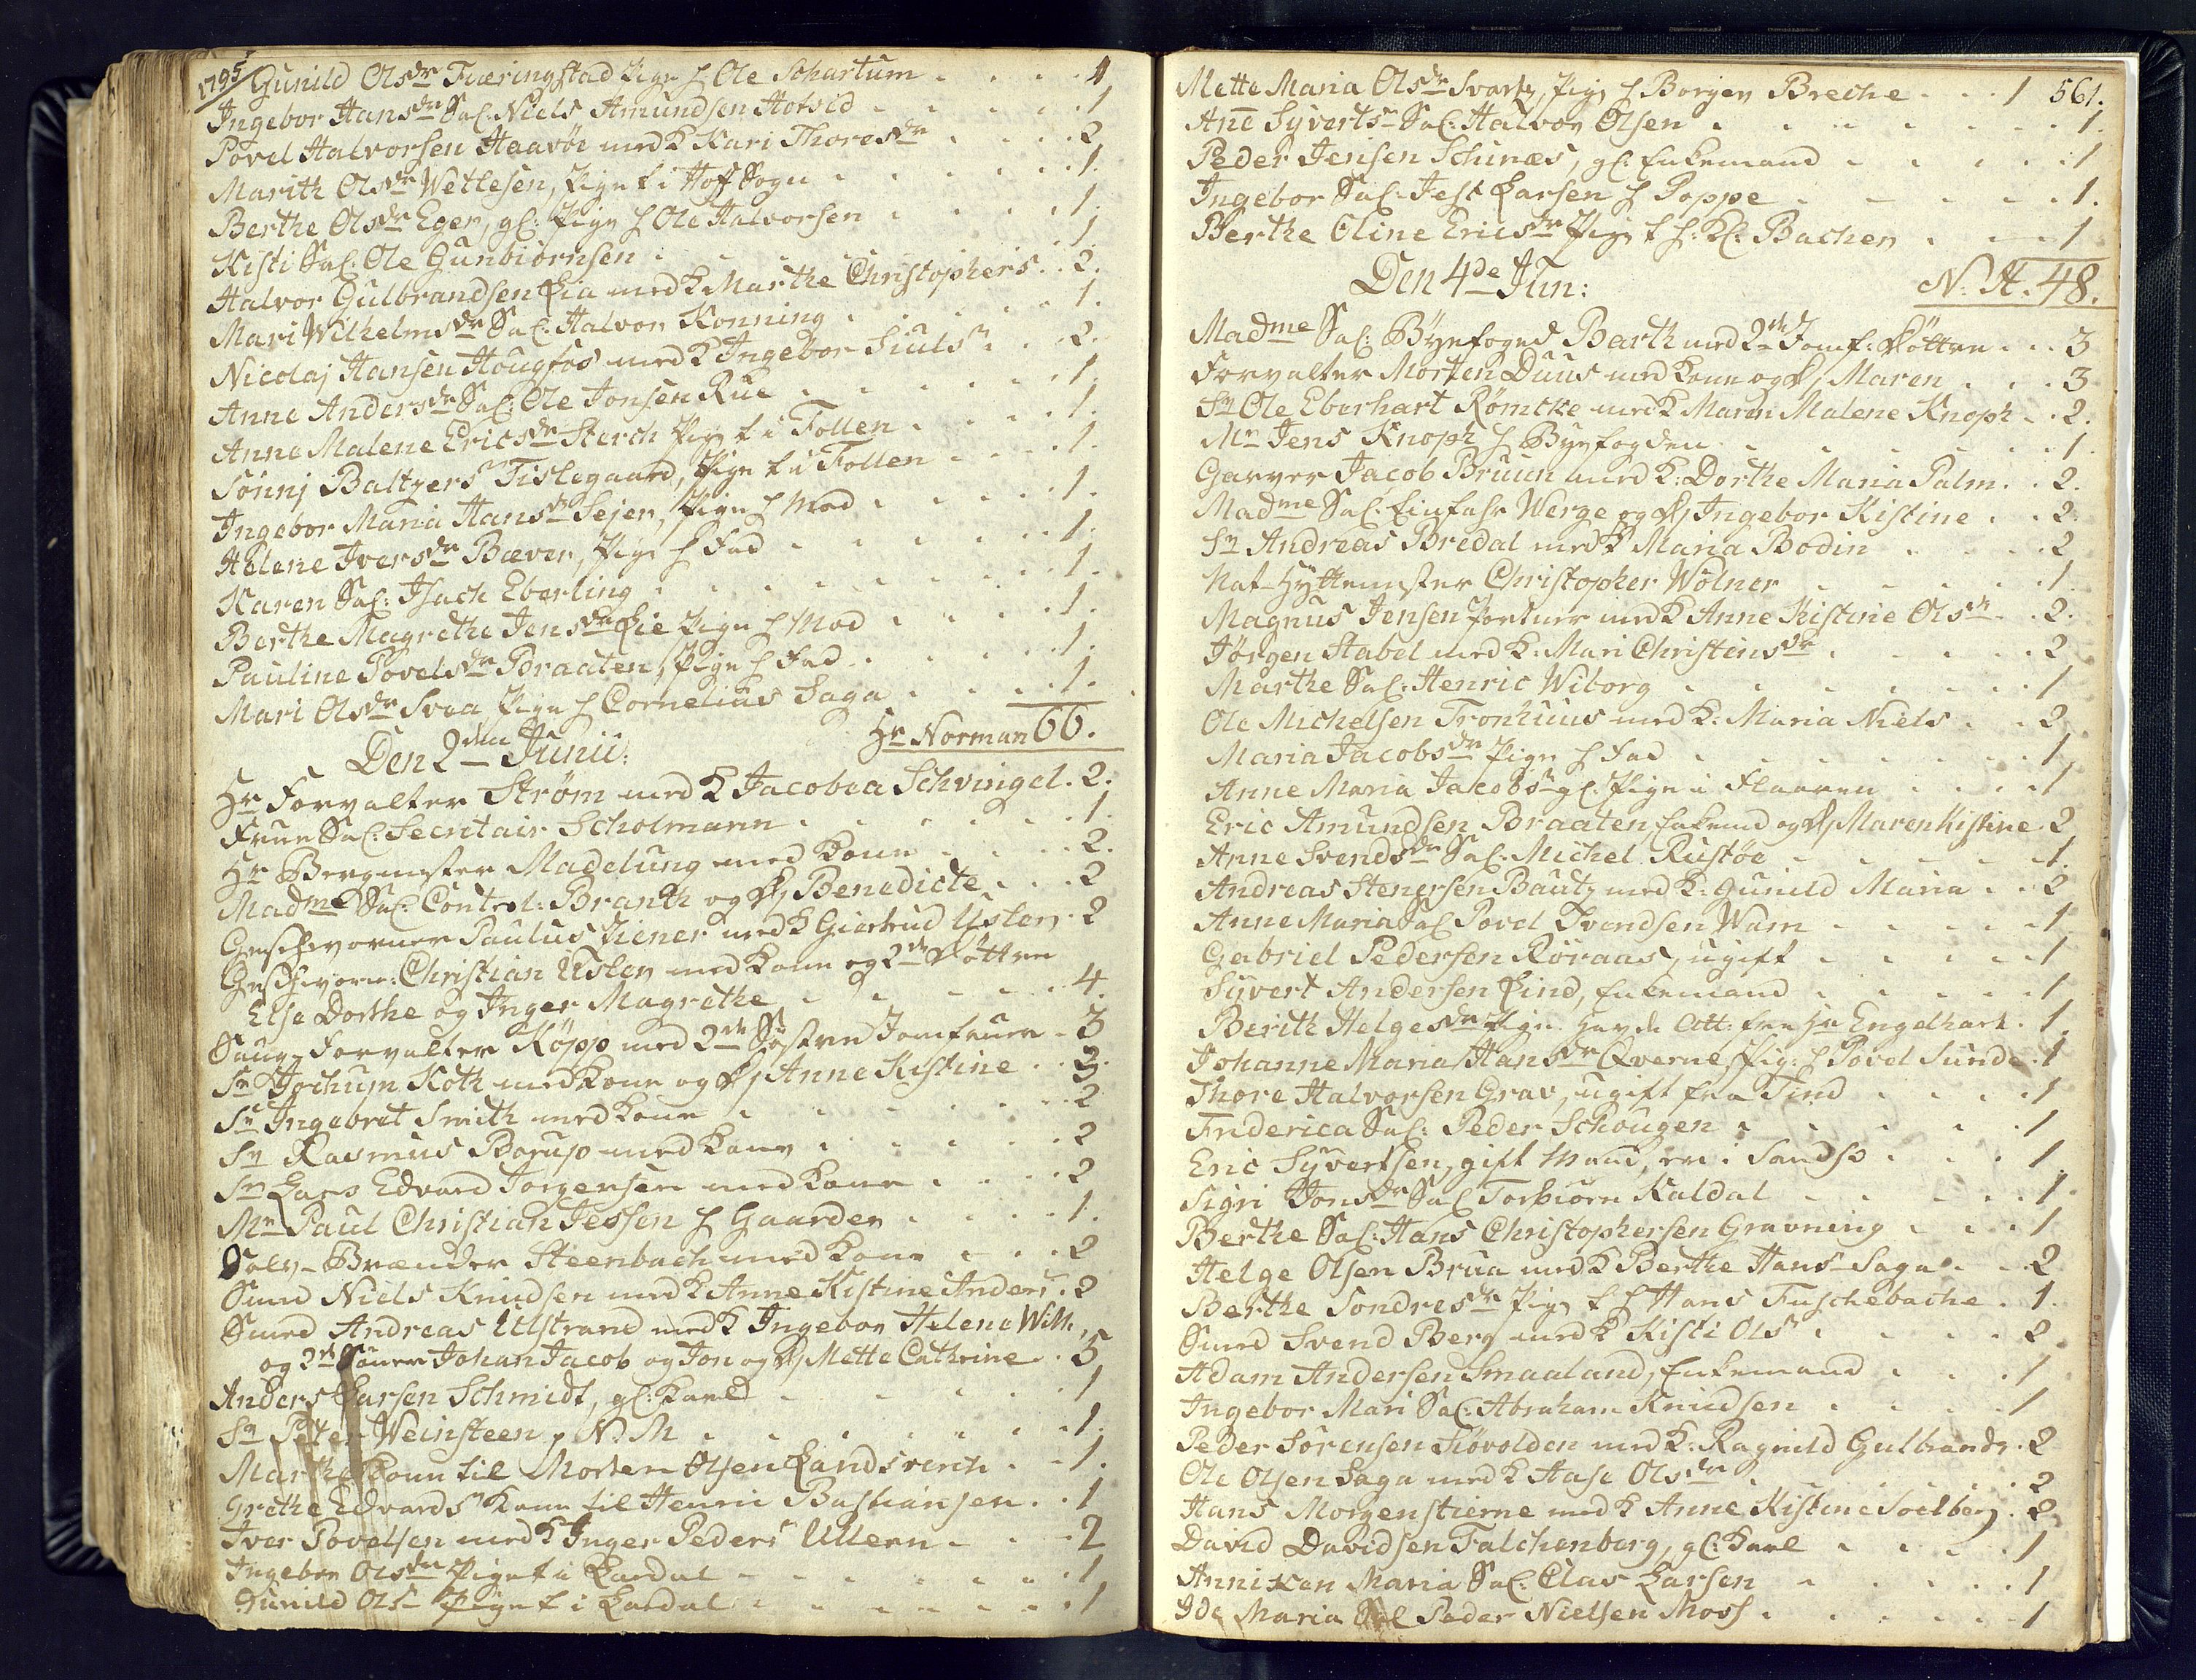 1795
Gunild Olsdr Fiæringstad Pige h Ole Schartum . . . . 1
Ingebor Hansdr Sal. Niels Amundsen Hotvid . . . . 1
Povel Halvorsen Haavöe med K Kari Thoresdr . . . 2
Marith Olsdr Wetlesen, Pige f i Hoff Sogn . . . . 1.
Berthe Olsdr Eger, gl: Pige h Ole Halvorsen . . . . 1.
Kisti Sal. Ole Gunbiørnsen . . . . 1
Halvor Gulbrandsen Lia med K Marthe Christophers . . 2.
Mari Wilhelmsdr Sal: Halvor Konning . . . . 1.
Nicolaj Hansen Hougfos med K Ingebor Siuls . . 2.
Anne Andersdr Sal: Ole Jonsen Rue . . . . 1.
Anne Malene Ericsdr Sterch Pige f i Follen . . . . 1.
Sönnj Baltzers Fislegaard, Pige f i Follen . . . . 1.
Ingebor Maria Hansdr Sejer, Pige h Mod . . . . 1.
Helene Iversdr Bæver, Pige h Fad . . . . 1.
Karen Sal: Isach Eberling . . . . 1.
Berthe Magrethe Jensdr Lie Pige h Mod . . . . 1.
Pauline Povelsdr Braaten, Pige h Fad . . . . 1.
Mari Olsdr Svaa Pige h Cornelius Saga . . . . 1.
Hr Norman 66.
Den 2den Junii:
Hr Forvalter Strøm med K Jacobea Schvingel . 2.
Frue Sal: Secritair Scholmann . . . . 1.
Hr Bergmester Madelung med Kone . . . . 2.
Madme Sal: Control: Branth og D/ Benedicte . . . 2
Geschvorner Paulus Ziener med K Giertrud Usler . 2
Geschvorn: Christian Usler med Kone og 2de Döttre
Else Dorthe og Inger Magrethe . . . . 4.
Saug-Forvalter Köpp med 2de Söstre Jomfruer - 3
Sr Jochum Koth med Kone og D/ Anne Kistine . . 3.
Sr Ingebret Smith med Kone . . . . 2
Sr Rasmus Borup med Kone . . . . 2
Sr Lars Edvard Jorgensen med Kone . . . . 2
Mr Paul Christian Jessen h Gaarder . . . . 1.
Sølv-Brænder Steenbach med Kone . . . 2
Smed Niels Knudsen med K Anne Kistine Anders . 2
Smed Andreas Ulstrand med K Ingebor Helene Wilh.
og 2de Sönner Johan Jacob og Jon og D/ Mette Cathrine . 5
Anders Larsen Schmidt, gl: Karl . . . . 1
Sr Peter Weinsteen, N. M . . . . 1.
Marthe Kone til Morten Olsen Landsverch . . 1.
Grethe Edvards Kone til Henric Bastiansen . . 1
Iver Povelsen med K Inger Peders Ullern . . . 2
Ingebor Olsdr Pige f i Lardal . . . . 1
Gunild Ols Pige f i Lardal . . . . 1
561.
Mette Maria Olsdr Svartz, Pige h Borger Breche . . . 1
Ane Syverts Sal: Halvor Olsen . . . . 1.
Peder Jensen Schinæs, gl: Enkemand . . . . 1
Ingebor Sal. Jest Larsen h Poppe . . . . 1.
Berthe Oline Ericsdr Pige f h: Kl: Bachen . . . 1
N. H. 48.
Den 4de Jun:
Madme Sal: Byefoged Barth med 2de Jomf: Döttre . . . 3
Forvalter Morten Duus med Kone og D/ Maren . . . 3
Sr Ole Eberhart Römcke med K Maren Malene Knoph . . 2.
Mr Jens Knoph h Byefogden . . . . 1.
Garver Jacob Bruun med K: Dorthe Maria Palm . . 2.
Madme Sal: Einfahr Werge og D/ Ingebor Kistine . . 2
Sr Andreas Bredal med K Maria Bodin . . . . 2
Nat-Hyttemester Christopher Wolner . . . . 1.
Magnus Jensen Portner med K Anne Kistine Ols . . 2.
Jörgen Stabel med K: Mari Christensdr . . . . 2
Marthe Sal: Henric Wiborg . . . . 1
Ole Michelsen Tronhuus med K: Maria Niels . . 2
Maria Jacobsdr Pige h Fad . . . . 1
Anne Maria Jacobs gl: Pige i Flaaen . . . . 1
Eric Amundsen Braaten Enkemd og D/ Maren Kistine . 2
Anne Svendsdr Sal: Michel Rustöe . . . . 1.
Andreas Stenersen Bautz med K: Gunild Maria . . 2
Anne Maria Sal Povel Svendsen Wam . . . . 1
Gabriel Pedersen Röraas, ugift . . . . 1
Syvert Andersen Lind, Enkemand . . . . 1
Berith Helgesdr Pige havde Att: fra Hr Engelhart . 1.
Johanne Maria Hansdr Qverne, Pig: h Povel Sunde . 1
Thore Halvorsen Grav, ugift fra Tind . . . . 1
Friderica Sal: Peder Schougen . . . . 1
Eric Syvertsen, gift Mand, er i Sands . . . 1
Sigri Jonsdr Sal Torbiörn Kaldal . . . . 1.
Berthe Sal: Hans Christophersen Gravning . . . 1
Helge Olsen Brua med K Berthe Hans Saga . . 2
Berthe Sondresdr Pige f h Hans Fuschebache . 1.
Smed Svend Berg med K Kisti Ols . . . . 2
Adam Andersen Smaaland, Enkemand . . . 1
Ingebor Mari Sal: Abraham Knudsen . . . 1
Peder Sörensen Fiövolden med K: Ragnild Gulbrands . 2
Ole Olsen Saga med K Aase Olsdr . . . . 2
Hans Morgenstierne med K Anne Kistine Soelberg . 2
David Davidsen Falchenberg, gl: Karl . . . . 1
Anniken Maria Sal: Clas Larsen . . . . 1
Ide Maria Sal Peder Nielsen Moss . . . . 1